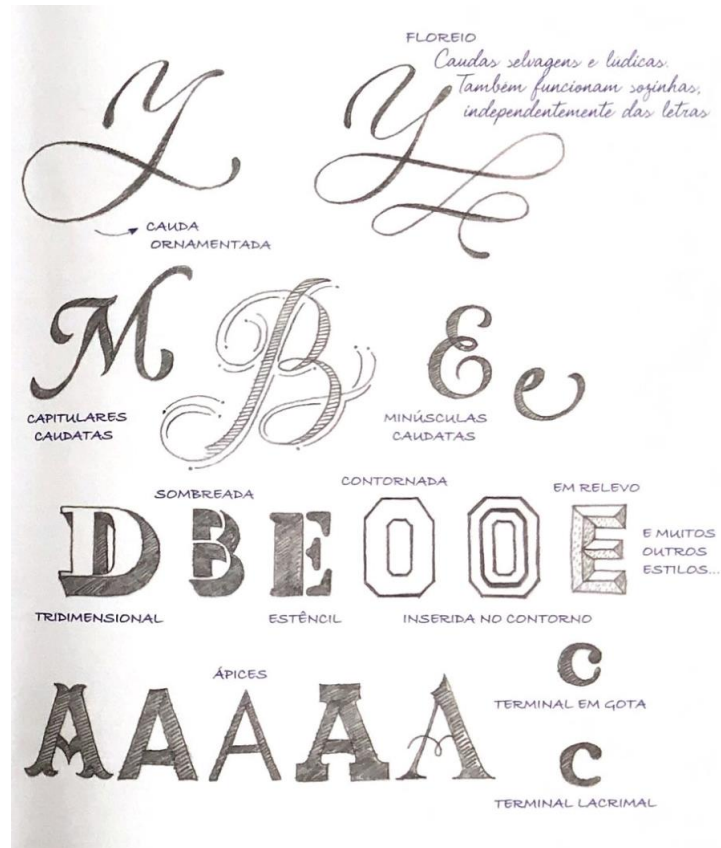 FLOREIO
Caudas selvagens e lúdicas.
Também funcionam sozinhas,
independentemente das letras
Y
Y
CAUDA
ORNAMENTADA
M
B
E
e
CAPITULARES
CAUDATAS
MINÚSCULAS
CAUDATAS
SOMBREADA
CONTORNADA
EM RELEVO
D
B
E
O
O
E
E MUITOS
OUTROS
ESTILOS...
TRIDIMENSIONAL
ESTÊNCIL
INSERIDA NO CONTORNO
ÁPICES
A
A
A
A
A
c
TERMINAL EM GOTA
c
TERMINAL LACRIMAL